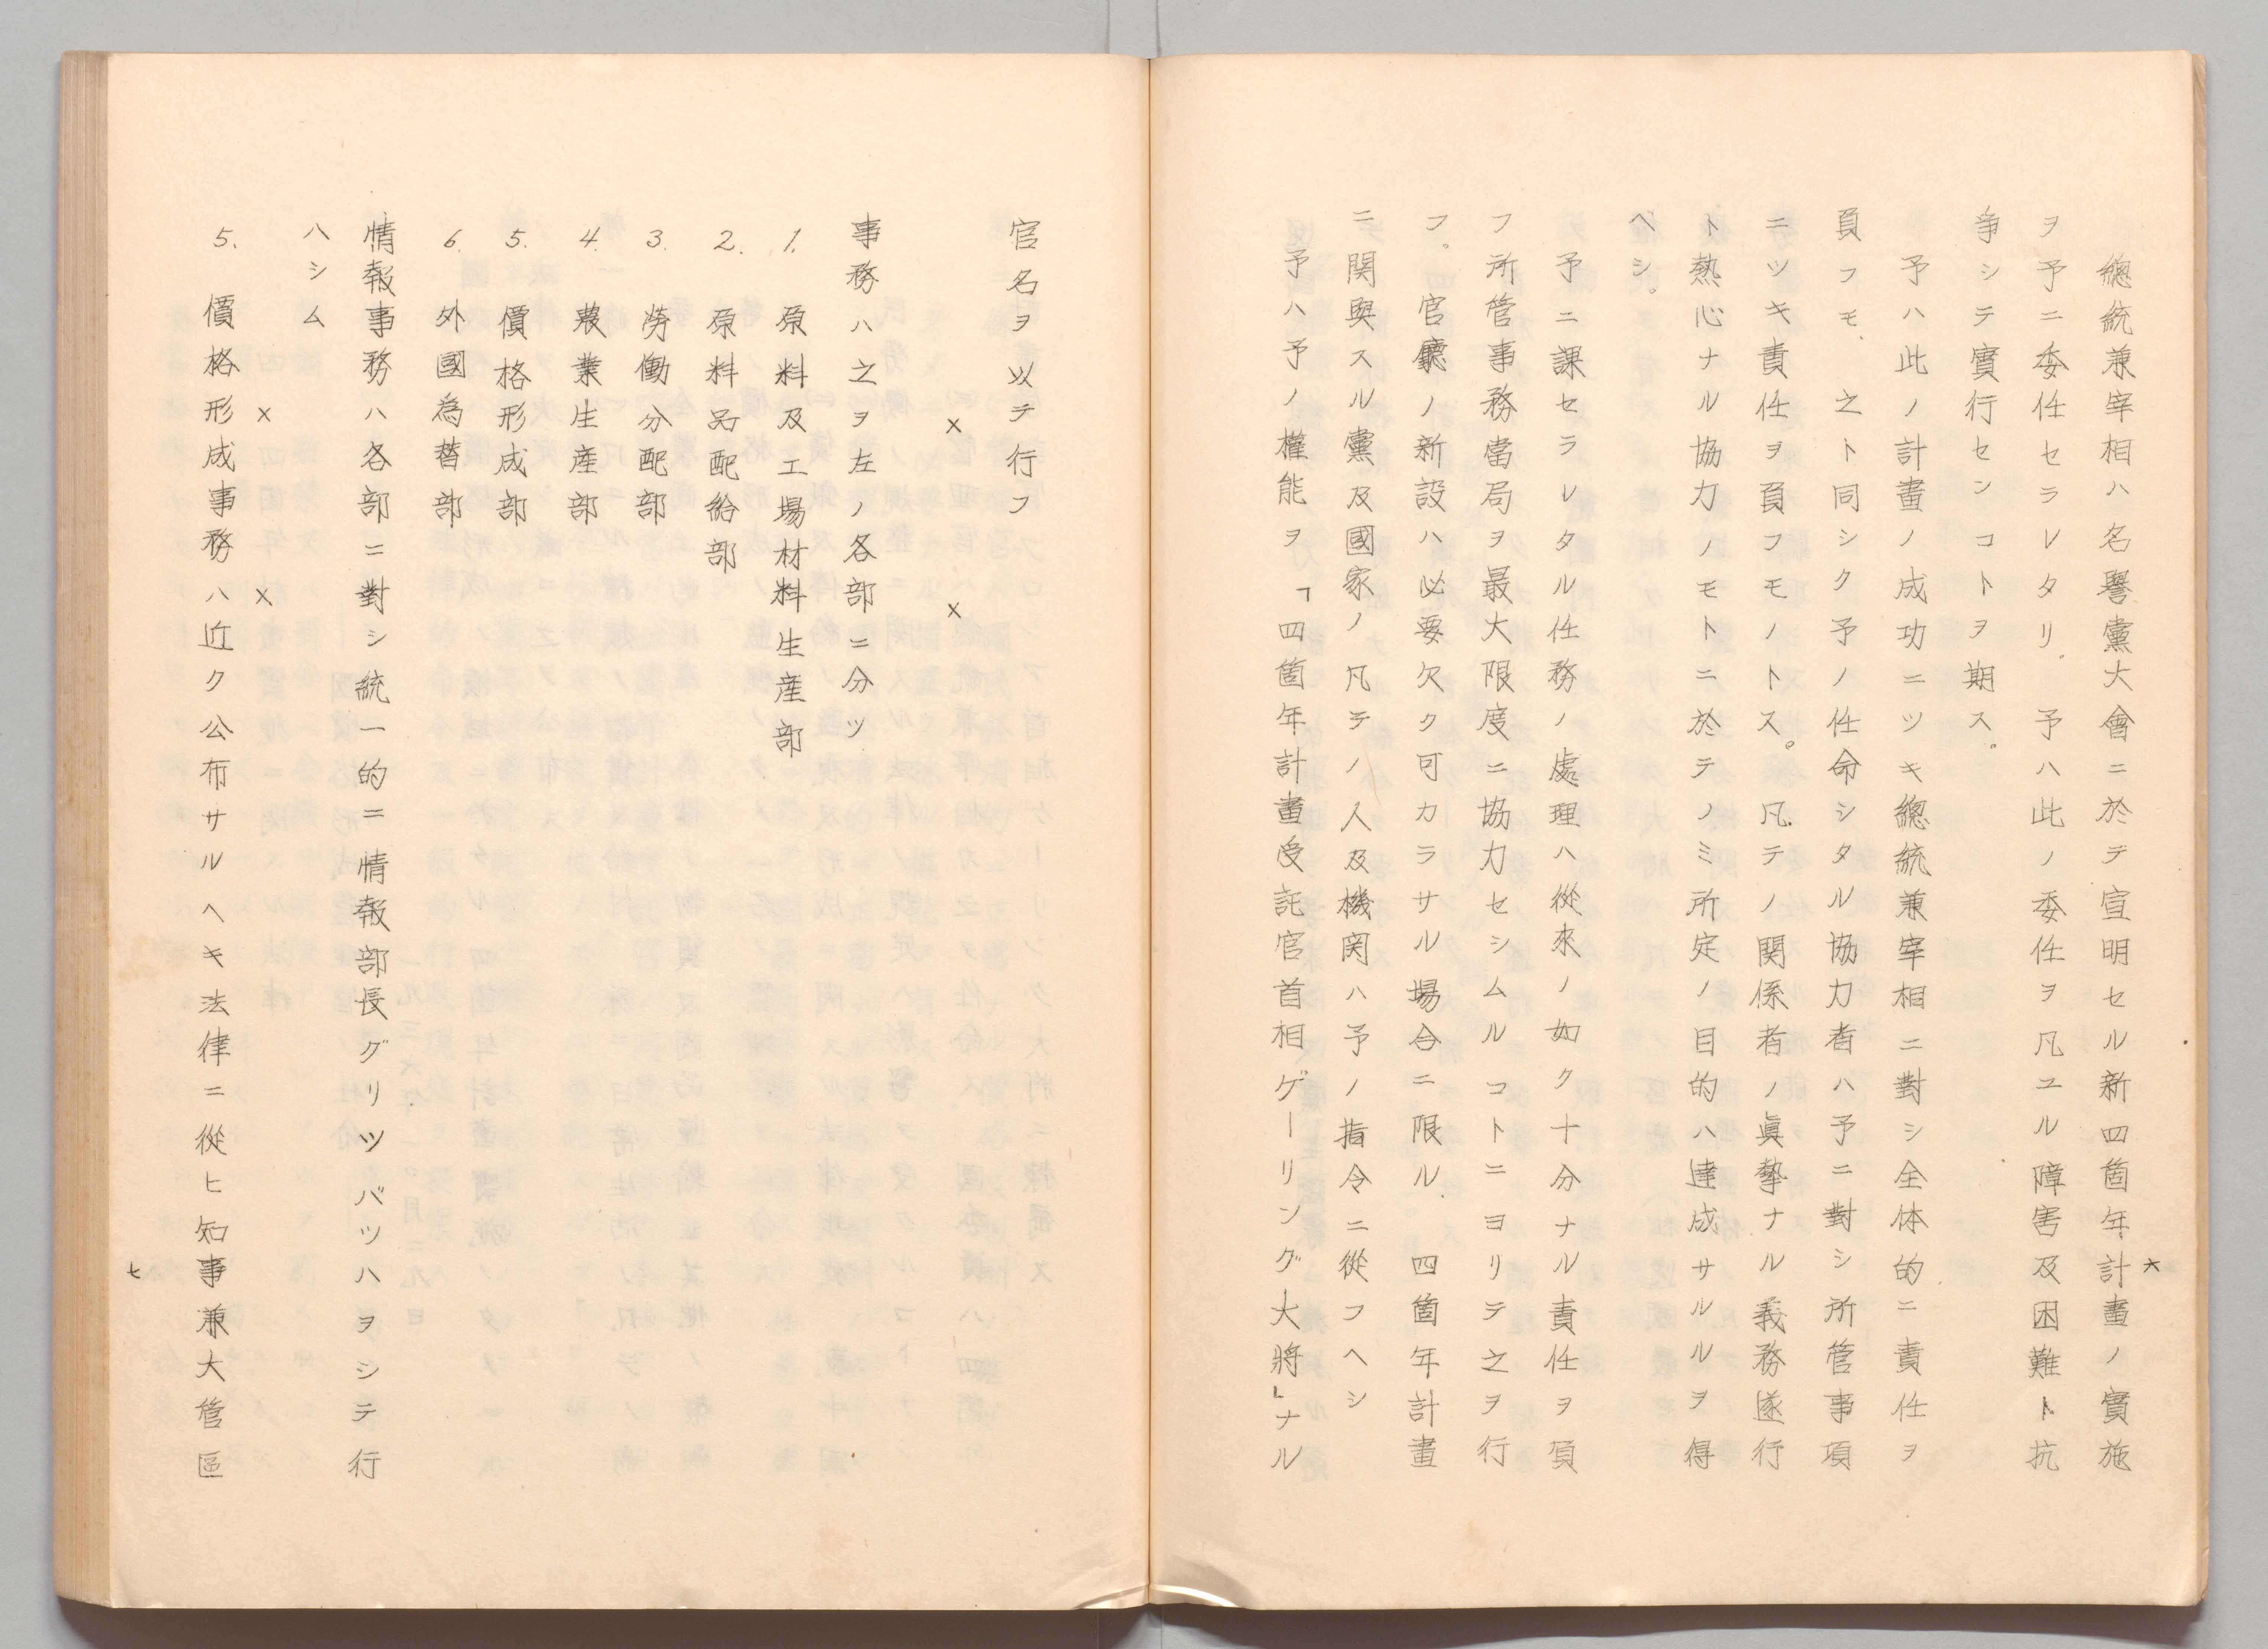 六
總統兼宰相ハ名譽黨大會ニ於テ宣明セル新四箇年計畫ノ實施
ヲ予ニ委任セラレタリ、予ハ此ノ委任ヲ凡ユル障害及困難ト抗
爭シテ實行センコトヲ期ス。
予ハ此ノ計畫ノ成功ニツキ總統兼宰相ニ對シ全体的ニ責任ヲ
負フモ、之ト同シク予ノ任命シタル協力者ハ予ニ對シ所管事項
ニツキ責任ヲ負フモノトス。凡テノ関係者ノ眞摯ナル義務遂行
ト熱心ナル協力ノモトニ於テノミ所定ノ目的ハ達成サルルヲ得
ヘシ。
予ニ課セラレタル任務ノ處理ハ從來ノ如ク十分ナル責任ヲ負
フ所管事務當局ヲ最大限度ニ協力セシムルコトニヨリテ之ヲ行
フ。官廳ノ新設ハ必要欠ク可カラサル場合ニ限ル、四箇年計畫
ニ関與スル黨及國家ノ凡テノ人及機関ハ予ノ指令ニ從フヘシ
予ハ予ノ權能ヲ「四箇年計畫受託官首相ゲーリング大將」ナル
官名ヲ以テ行フ
× ×
事務ハ之ヲ左ノ各部ニ分ツ
1. 原料及工場材料生産部
2. 原料品配給部
3. 勞働分配部
4. 農業生産部
5. 價格形成部
6. 外國為替部
情報事務ハ各部ニ對シ統一的ニ情報部長グリツバツハヲシテ行
ハシム
× ×
5. 價格形成事務ハ近ク公布サルヘキ法律ニ從ヒ知事兼大管區
七